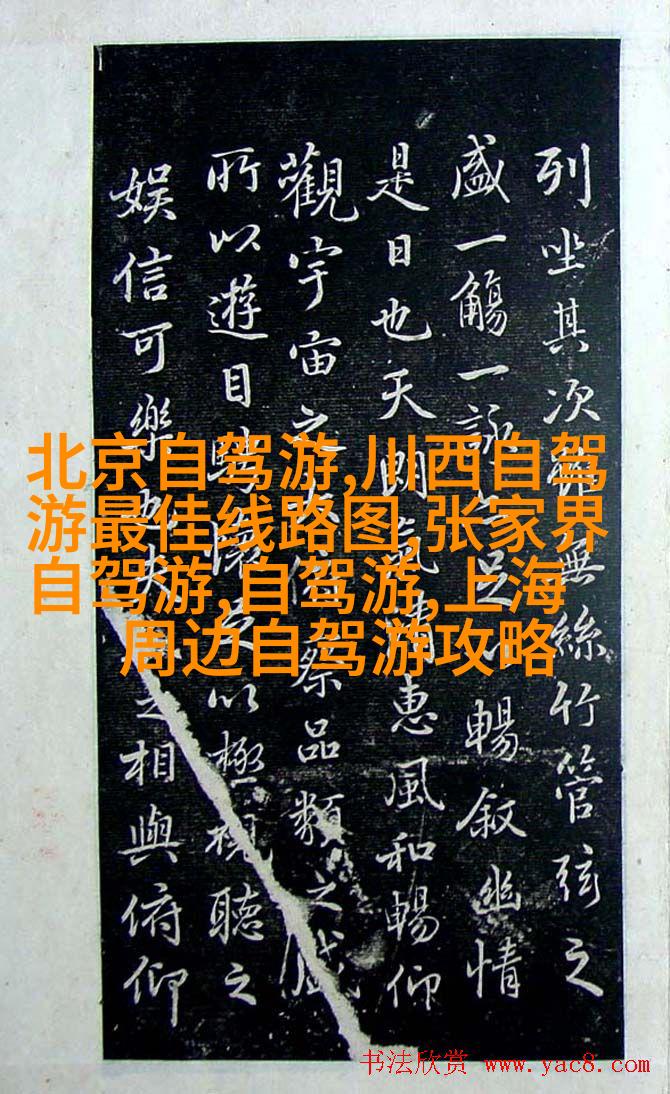 列坐其次無絲竹管弦之
盛一觴一詠足暢叙幽情
是日也天朗氣清惠風和暢仰
觀宇宙之大察品類之盛
所以遊目騁懷足以極視聽之
娱信可樂夫之相與俯仰
北京自驾游,川西自驾
游最佳线路图,张家界
自驾游,自驾游,上海
周边自驾游攻略
书法欣赏 www.yac8.com